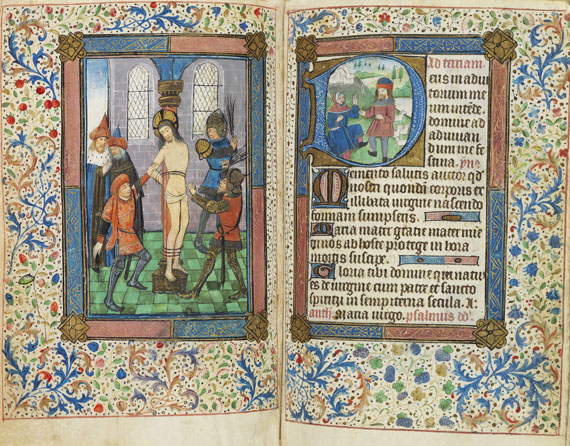 Ad tertiam.
Deus in adiu
torium me
um intēde.
domine ad
adiuuan
dum me fe
stina. ymꝯ
Memento salutis auctor qd
nostri quondā corporis ex
illibata uirgine nascendo
formam sumpseris.
Maria mater gratie mater mie
tu nos ab hoste protege in hora
mortis suscipe.
Gloria tibi domine qui natus
es de uirgine cum patre et sancto
spiritu in sempiterna secula. A.
anth. Maria virgo. psalmus dd.